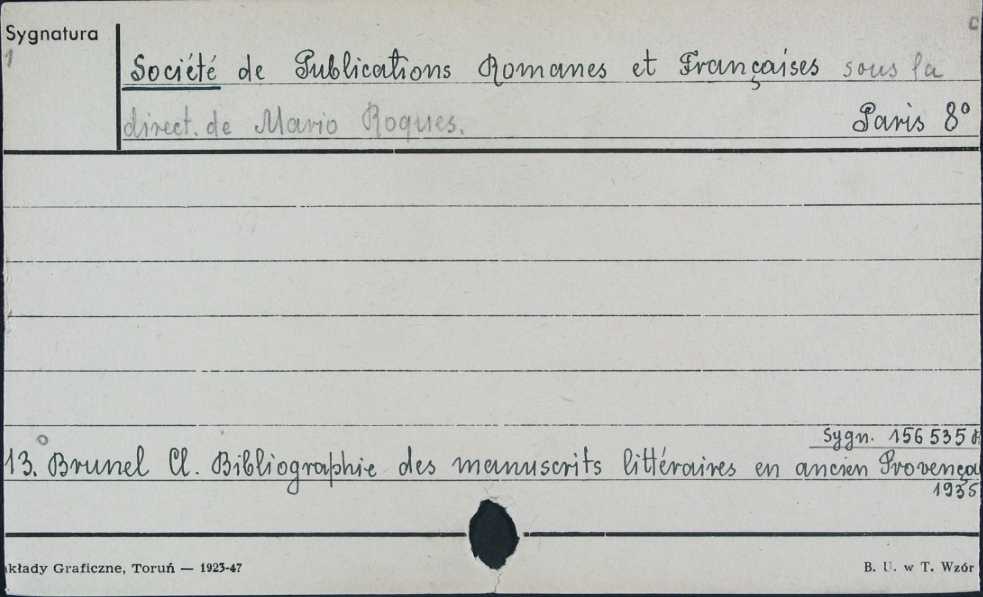 Sygnatura
Société de Publications Romanes et Françaises sous la
direct. de Mario Roques.
Paris 8°
Sygn. 156 535
13. Brunel Cl. Bibliographie des manuscrits littéraires en ancien Provença
1935
kłady Graficzne, Toruń — 1923-47
B. U. w T. Wzór